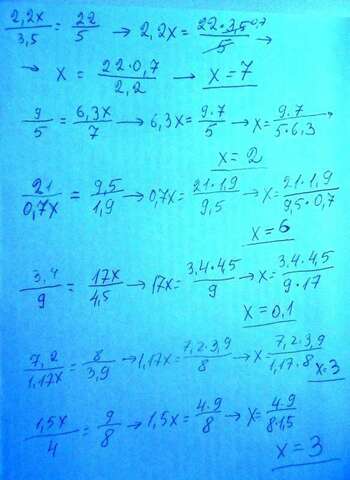 2,2x/3,5 = 22/5 → 2,2x = 22·3,5 0,7/5 →
→ x = 22·0,7/2,2 → x=7
9/5 = 6,3x/7 → 6,3x = 9·7/5 → x = 9·7/5·6,3 →
x=2
21/0,7x = 9,5/1,9 → 0,7x = 21·1,9/9,5 → x = 21·1,9/9,5·0,7
x=6
3,4/9 = 17x/4,5 → 17x = 3,4·4,5/9 → x = 3,4·4,5/9·17
x=0,1
7,2/1,17x = 8/3,9 → 1,17x = 7,2·3,9/8 → x 7,2·3,9/1,17·8
x=3
1,5x/4 = 9/8 → 1,5x = 4·9/8 → x = 4·9/8·15
x=3